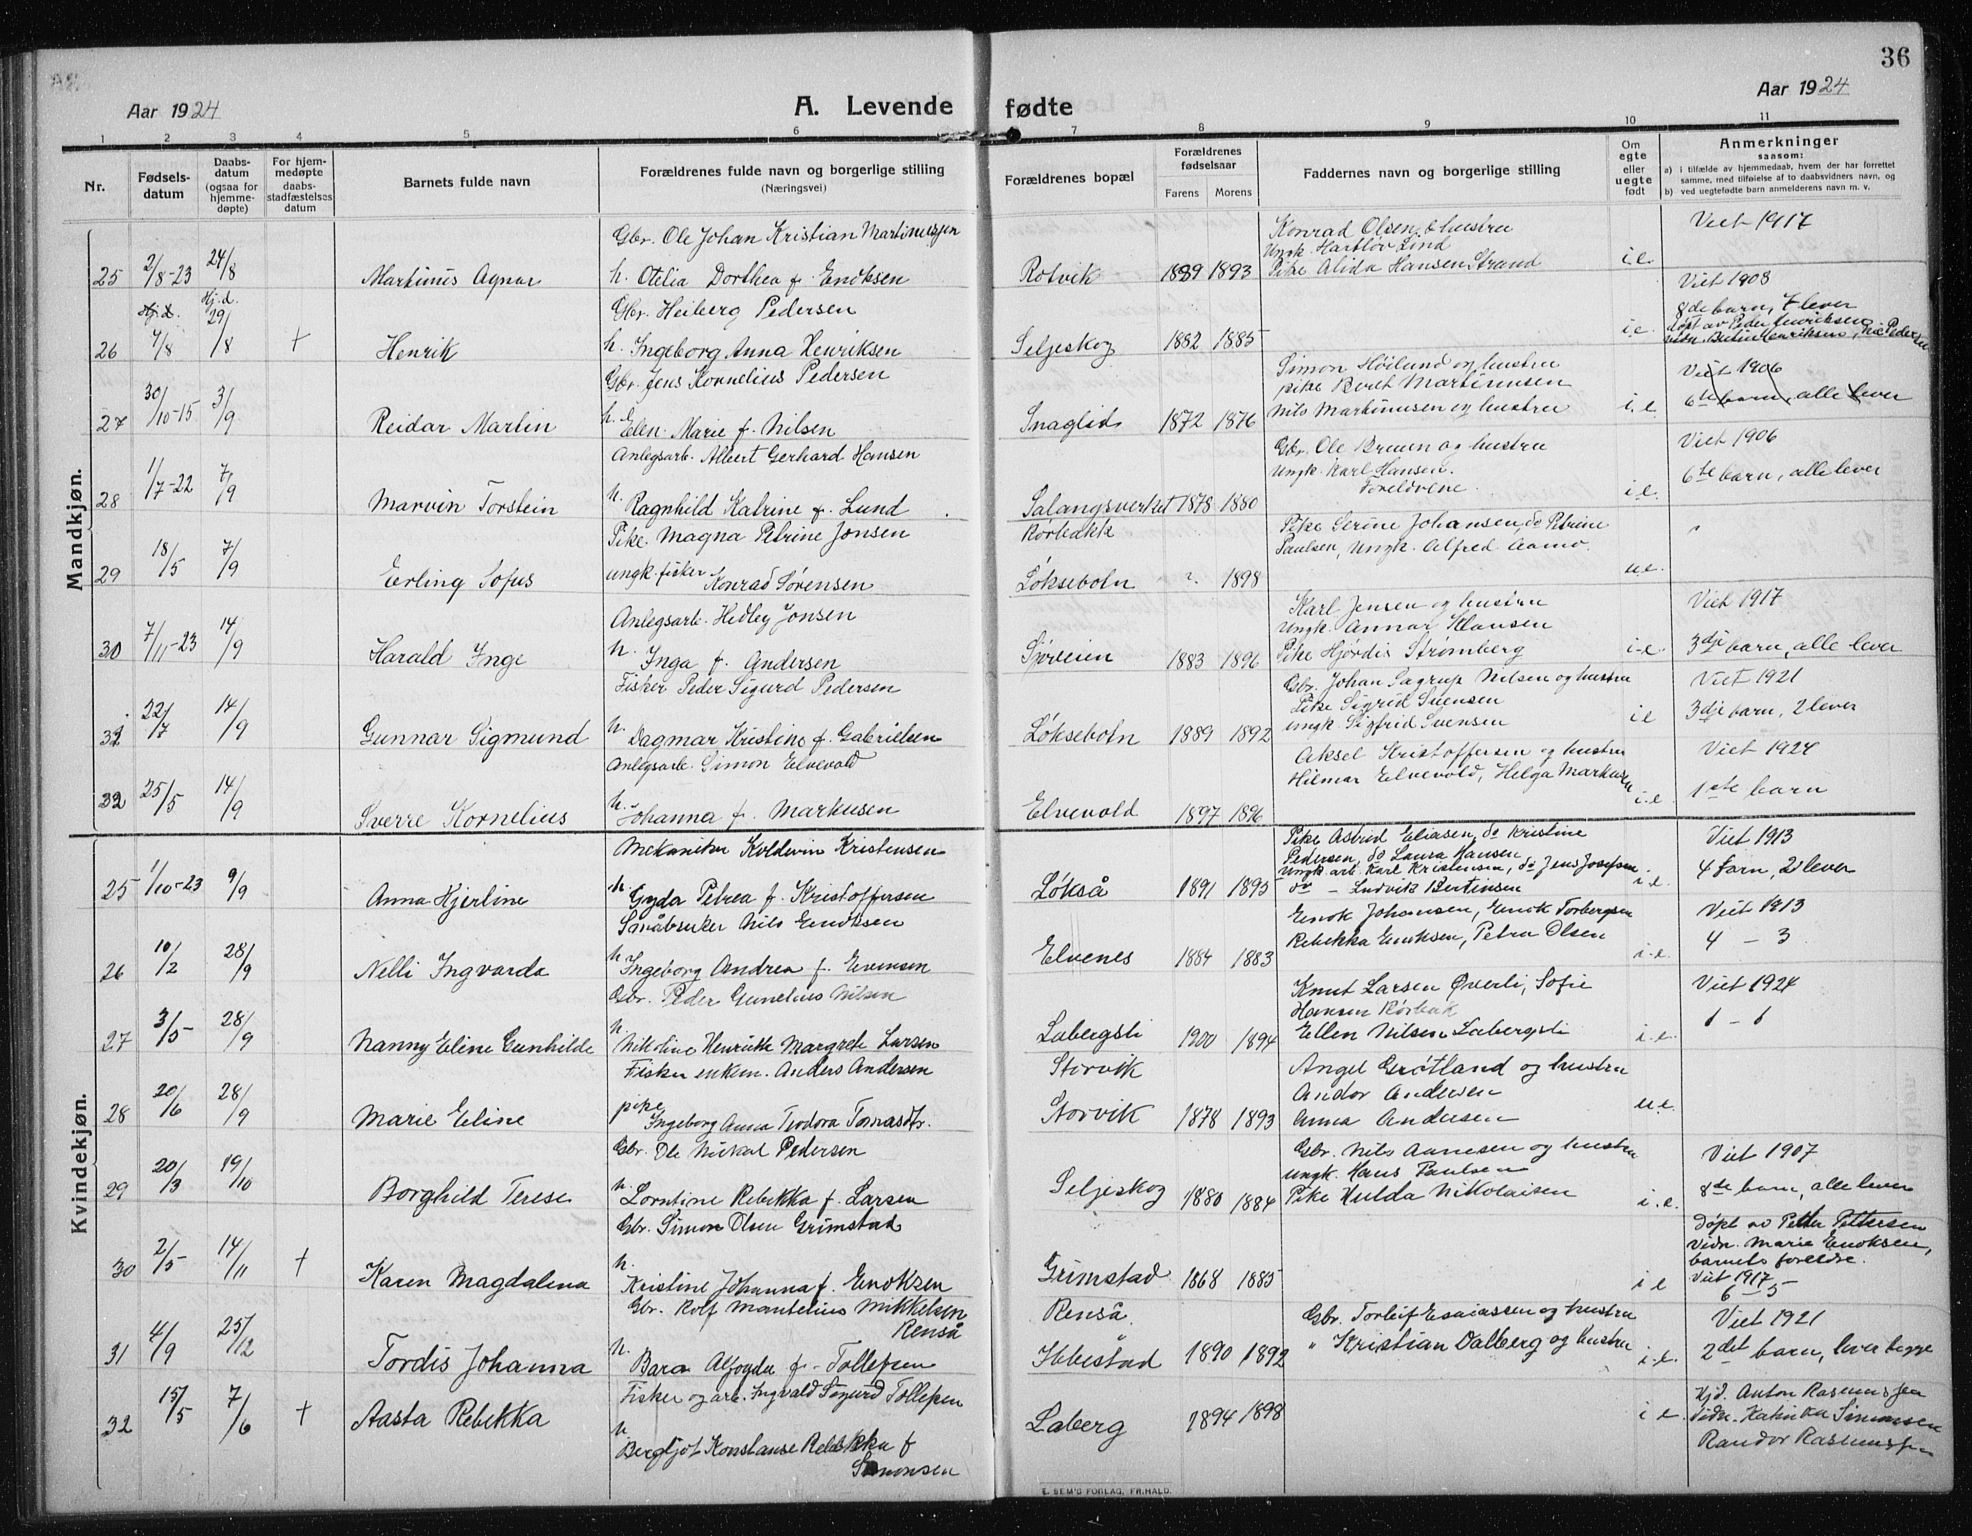 36
Aar 1924
A. Levende fødte
Aar 1924
1 2 3 4 5 6 7 8 9 10 11
Nr.
Fødsels-
datum
Daabs-
datum
(ogsaa for
hjemme-
døpte)
For hjem-
medøpte
daabs-
stadfæstelses
datum
Barnets fulde navn
Forældrenes fulde navn og borgerlige stilling
(Næringsvei)
Forældrenes bopæl
Forældrenes
fødselsaar
Farens Morens
Faddernes navn og borgerlige stilling
Om
egte
eller
uegte
født
Anmerkninger
saasom:
a) i tilfælde av hjemmedaab, hvem der har forrettet
samme, med tilføielse af to daabsvidners navn, og
b) ved uegtefødte barn anmelderens navn m. v.
Mandkjøn.
Gbr. Ole Johan Kristian Martinussen
Konrad Olsen & hustru
Ungk. Hartløv Lind
Viet 1917
25 2/8-23 24/8 Martinus Agnar h. Otelia Dorthea f. Enoksen Rotvik 1889 1893 Pike Alida Hansen Strand i.e.
Hj.d.
Hj.d.
Gbr. Heiberg Pedersen
Viet 1908
8de barn, 7 lever
26 7/8 29/8 + Henrik h. Ingeborg Anna Henriksen Seljeskog 1882 1885 i.e.
døpt av Peder Henriksen
Gbr. Jens Kornelius Pedersen
Simon Høilund og hustru
pike Beret Martinusen
Viet 1906
27 30/10-15 3/9 Reidar Martin h. Elen Marie f. Nilsen Snaglid 1872 1876 Nils Martinusen og hustru i.e. 6te barn, alle lever
Anlegsarb. Albert Gerhard Hansen
Gbr. Ole Bruun og hustru
Ungk. Karl Hansen.
Viet 1906
28 1/7-22 7/9 Marvin Torstein h. Ragnhild Katrine f. Lund Salangsverket 1878 1880 Foreldrene i.e. 6te barn, alle lever
Pike. Magna Petrine Jonsen Rørbakk
Pike Serine Johansen, do Petrine
Paulsen, Ungk. Alfred Aamo.
29 18/5 7/9 Erling Sofus ungk. fisker Konrad Sørensen Løksebotn ? 1898 u.e.
Anlegsarb. Hedley Jonsen
Karl Jensen og hustru
Ungk. Annar Hansen
Viet 1917
30 7/11-23 14/9 Harald Inge h. Inga f. Andersen Sjøveien 1883 1896 Pike Hjørdis Strømberg i.e. 3dje barn, alle lever
Fisker Peder Sigurd Pedersen
Gbr. Johan Sagrup Nilsen og hustru
Pike Sigrid Svensen
Viet 1921
31 22/7 14/9 Gunnar Sigmund h. Dagmar Kristine f. Gabrielsen Løksebotn 1889 1892 Ungk. Sigfrid Svensen i.e. 3dje barn, 2 lever
Anlegsarb. Simon Elvevold
Aksel Kristoffersen og hustru
Hilmar Elvevold, Helga Markusen
Viet 1924
32 25/5 14/9 Sverre Kornelius h. Johanna f. Markusen Elvevold 1897 1896 i.e. 1ste barn
Kvindekjøn.
Mekaniker Koldevin Kristensen
Pike Astrid Eliasen, do Kristine
Pedersen, do Laura Hansen
Ungk. arb. Karl Kristensen, do Jens Josefsen
Viet 1913
25 1/10-23 9/9 Anna Hjerline h. Gyda Petrea f. Kristoffersen Løkså 1891 1895 do - Ludvik Bertinsen i.e. 4 barn, 2 lever
Småbruker Nils Enoksen
Enok Johansen, Enok Torbergsen
Rebekka Enoksen, Petra Olsen
Viet 1913
26 10/2 28/9 Nelli Ingvarda h. Ingeborg Andrea f. Evensen Elvenes 1884 1883 i.e. 4 - 3
Gbr. Peder Gunelius Nilsen
Knut Larsen Øverli, Sofie
Hansen Rørbak
Viet 1924
27 3/5 28/9 Nanny Eline Gunhilde h. Nikoline Henrikke Margrete Larsen Labergsli 1900 1894 Ellen Nilsen Labergsli i.e. 1 - 1
Fisker enkem. Anders Andersen Storvik
Angel Grøtland og hustru
Andor Andersen
28 20/6 28/9 Marie Eline pike Ingeborg Anna Teodora Tomasdtr. Storvik 1878 1893 Anna Andersen u.e.
Gbr. Ole Nikol Pedersen
Gbr. Nils Aanesen og hustru
Ungk. Hans Paulsen
Viet 1907
29 20/3 19/10 Borghild Terese h. Lorntine Rebekka f. Larsen Seljeskog 1880 1884 Pike Hulda Nikolaisen i.e. 8de barn, alle lever
Gbr. Simon Olsen Grimstad
døpt av Petter Pettersen
Vidn. Marie Enoksen,
barnets foreldre.
30 2/5 14/11 + Karen Magdalena h. Kristine Johanna f. Enoksen Grimstad 1868 1885 i.e. Viet 1917
6 - 5
Gbr. Rolf Mantelius Mikkelsen
Renså
Renså.
Gbr. Torleif Esaiassen og hustru
Viet 1921
31 4/9 25/12 Tordis Johanna h. Bara Alfogda f. Tollefsen Ibbestad 1890 1892 " Kristian Dalberg og hustru i.e. 2det barn, lever begge
Fisker og arb. Ingvald Sigurd Tollefsen
Hjd. Anton Rasmussen
32 15/5 7/6 + Aasta Rebekka h. Bergljot Konstanse Rebekka f. Simonsen Laberg 1894 1898 i.e. Vidn. Katinka Simonsen
Randor Rasmussen
E. SEM'S FORLAG, FR.HALD.